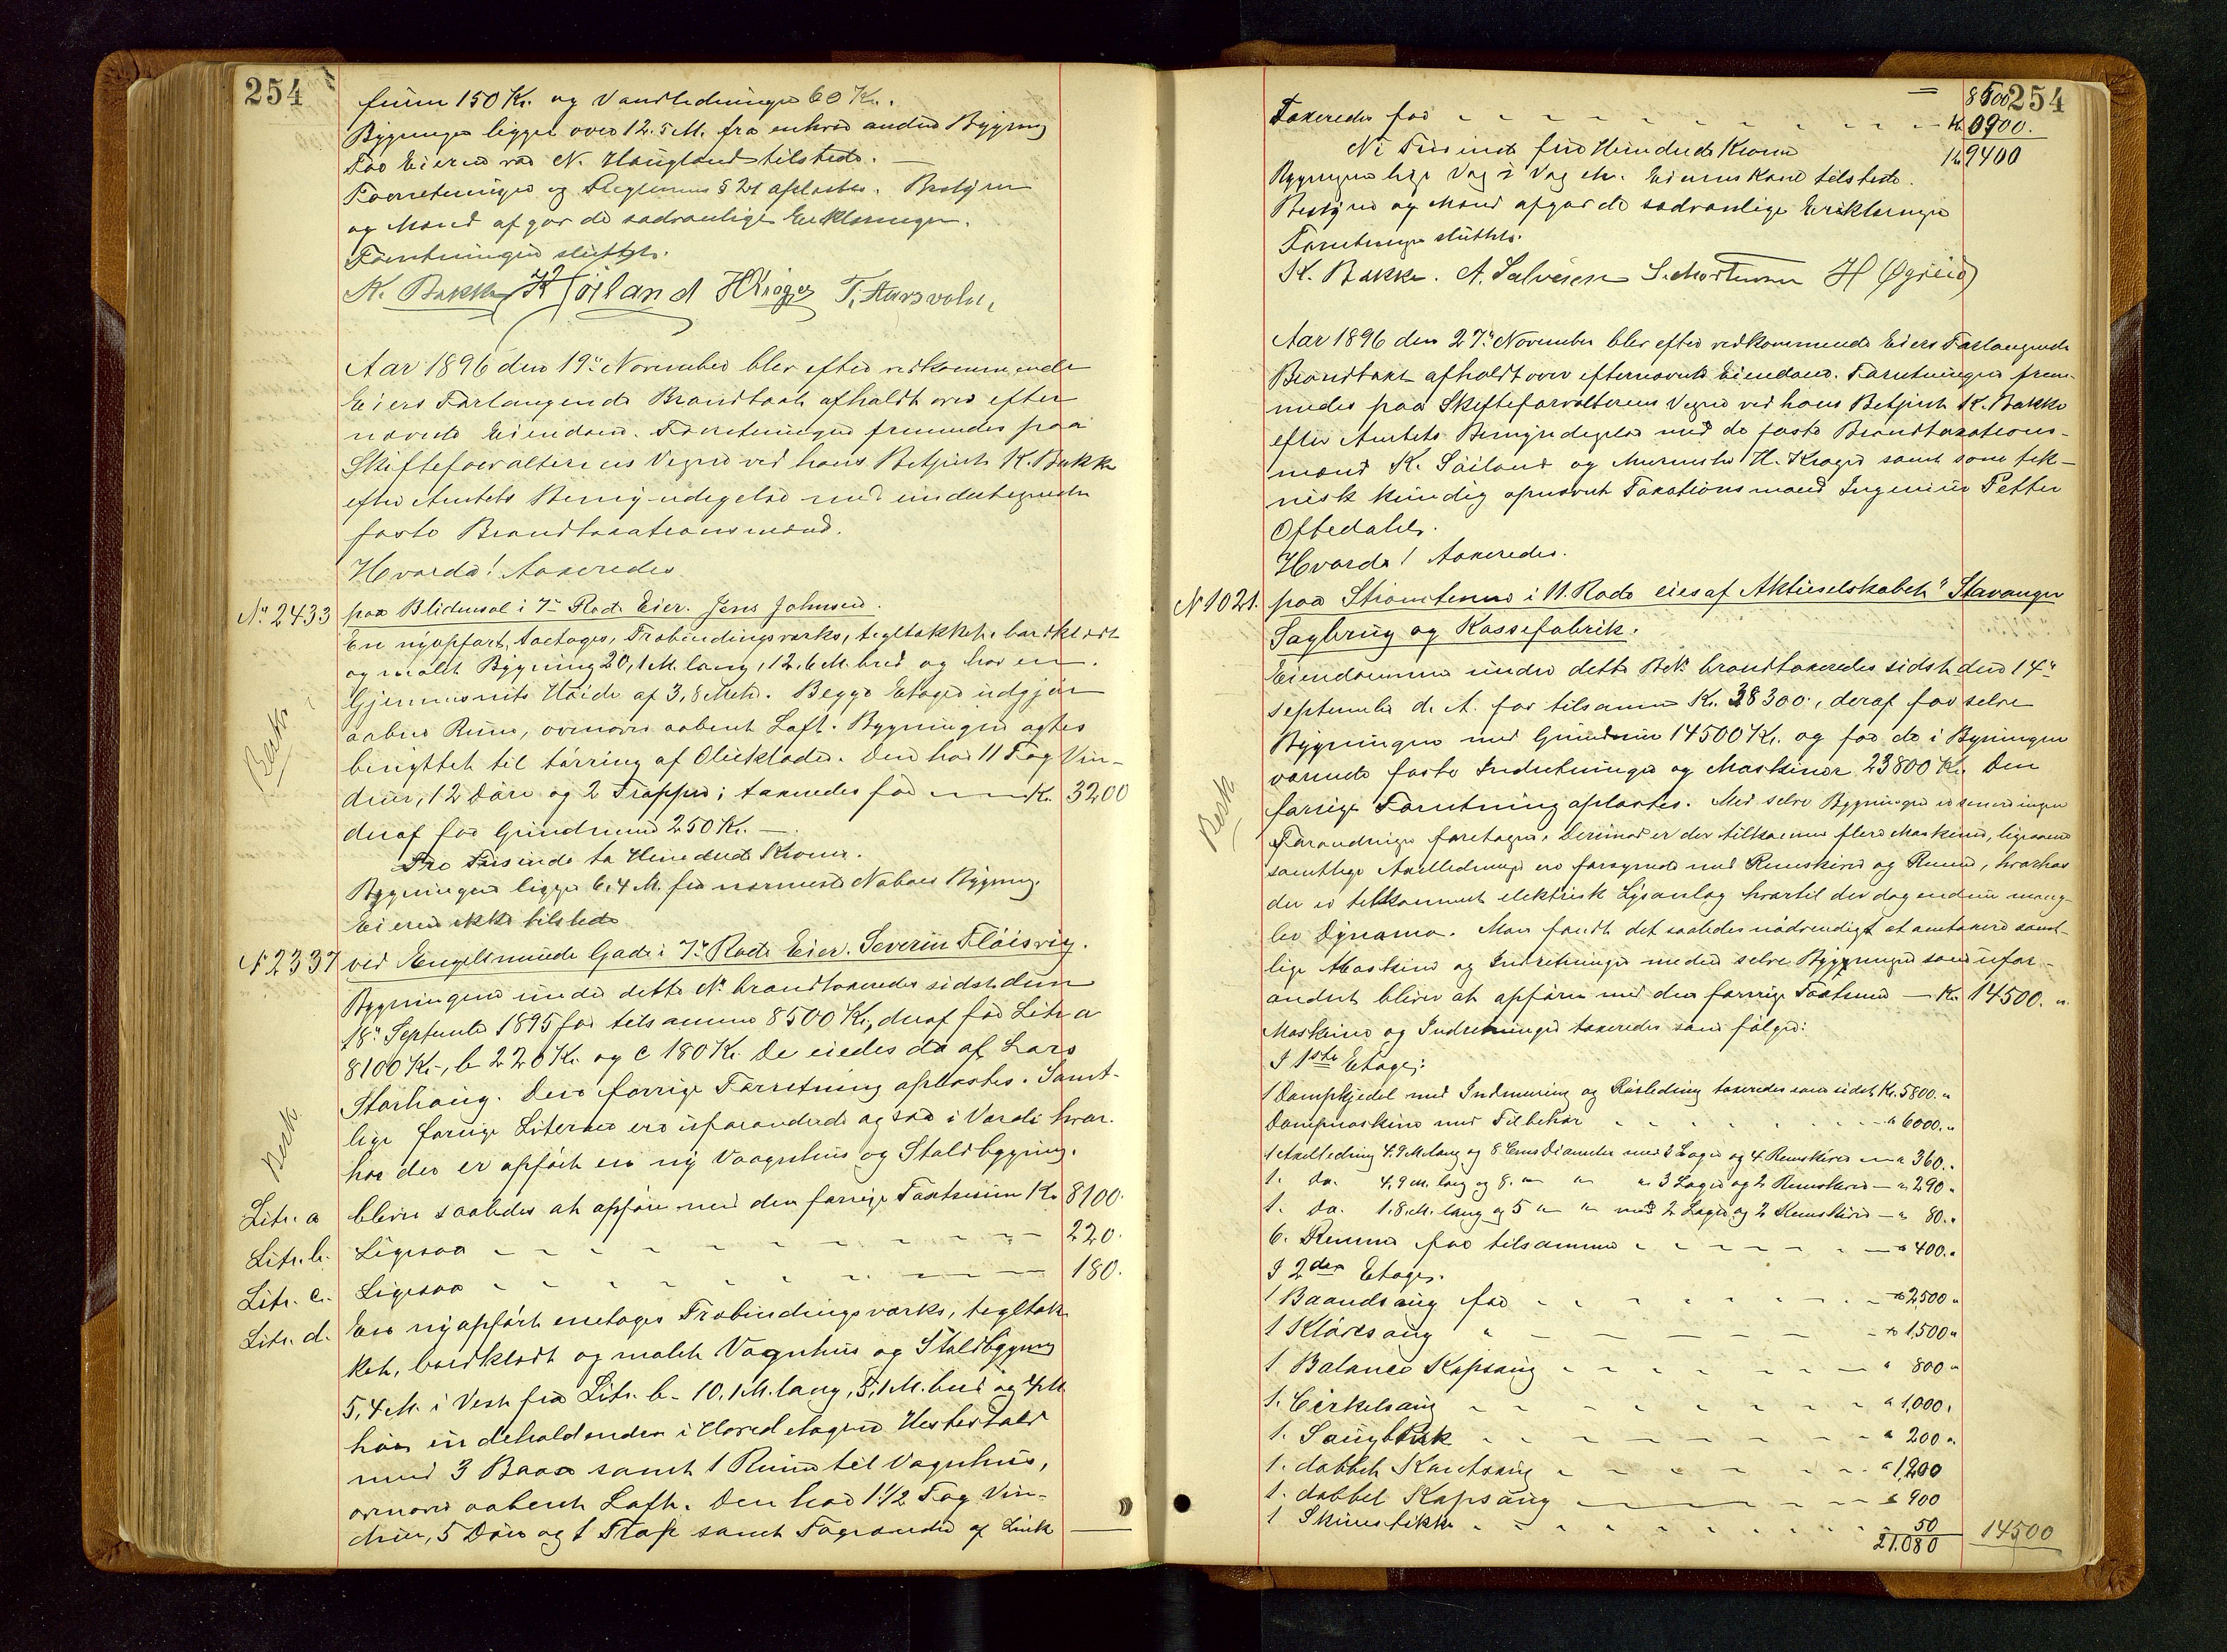 254
muren 150 Kr. og Vandledninger 60 Kr.
Bygningen ligger over 12.5 M. fra enhver anden Bygning
For Eieren var N. Haugland tilstede. —
Forretningen og Reglernes § 21 oplæstes. Bestyrer
og Mænd afgav de sædvanlige Erklæringer.
Forretningen sluttet.
K. Bakke K Söiland HKröger T. Aarsvold,
Aar 1896 den 19de November blev efter vedkommende
Eiers Forlangende Brandtaxt afholdt over efter
nævnte Eiendom. Forretningen fremmedes paa
Skifteforvalterens Vegne ved hans Betjent K. Bakke
efter Amtets Bemyndigelse med undertegnede
faste Brandtaxationsmænd.
Hvorda! Taxeredes
No 2433 paa Blidensol i 7de Rode Eier. Jens Johnsen.
En nyopført, toetages, Trebindingsværks, tegltækket, bordklædt
og malt Bygning 20,1 M. lang, 12.6 M. bred og har en
Gjennemsnits Höide af 3,8 Met. Begge Etager udgjør
aabne Rum, ovenover aabent Loft. Bygningen agtes
benyttet til törring af Olieklæder. Den har 11 Fag Vin-
duer, 12 Döre og 2 Trapper; taxeredes for — Kr. 3200
deraf for Grundmur 250 Kr. —
Tre Tusinde to Hundrede Kroner.
Bygningen ligger 6.4 M. fra nærmeste Naboes Bygning.
Eieren ikke tilstede
Besk.
No 2337 ved Engelsminde Gade i 7de Rode Eier. Severin Flöisvig.
Bygningerne under dette No. brandtaxeredes sidst den
18de September 1895 for tilsammen 8500 Kr, deraf for Litr a
8100 Kr-, b 220 Kr. og c 180 Kr. De eiedes da af Lars
Storhaug. Den forrige Forretning oplæstes. Samt-
lige forrige Literaer ere uforandrede ogsaa i Værdi hvor-
hos der er opfört en ny Vognhus og Staldbygning.
Besk.
Litr. a bliver saaledes at opføre med den forrige Taxtsum Kr 8100.
Litr. b. Ligesaa - - - - 220.
Litr. c. Ligesaa - - - - 180.
Litr. d. En nyopfört enetages Trebindingsværks, tegltæk-
ket, bordklædt og malet Vognhus og Staldbygning
5,4 M. i Vest fra Litr. b - 10.1 M. lang, 5,1 M. bred og 4 M.
höi indeholdende i Hovedetagen Hestestald
med 3 Baase samt 1 Rum til Vognhus,
ovenover aabent Loft. Den har 1 1/2 Fag Vin-
duer, 5 Döre og 1 Trap samt Tagrender af Zink
254
= 8500
Taxeredes for - - - - Kr. 0900.
Ni Tusinde fire Hundrede Kroner
Kr 9400
Bygningerne ligge Væg i Væg etc. Eierens Kone tilstede.
Bestyrer og Mænd afgav de sædvanlige Erklæringer
Forretningen sluttet.
K. Bakke. A. Salvesen S. Mortensen H Øgreid
Aar 1896 den 27de November blev efter vedkommende Eiers Forlangende
Brandtaxt afholdt over efternævnte Eiendom. Forretningen frem-
medes paa Skifteforvalterens Vegne ved hans Betjent K. Bakke
efter Amtets Bemyndigelse med de faste Brandtaxations-
mænd K. Söiland og Murmester H. Kröger samt som tek-
nisk kyndig opnævnt Taxationsmand Ingeniør Petter
Oftedahl.
Hvorda! Taxeredes.
No 1021. paa Strömsteinen i 11. Rode eies af Aktieselskabet "Stavanger
Sagbrug og Kassefabrik.
Eiendommen under dette BrNo. brandtaxeredes sidst den 14de
September d. A. for tilsammen Kr. 38300., deraf for selve
Bygningen med Grundmur 14500 Kr. og for de i Bygningen
værende faste Indretninger og Maskiner 23800 Kr. Den
forrige Forretning oplæstes. Med selve Bygningen er senere ingen
Forandringer foretagne. Derimod er der tilkommet flere Maskiner, ligesom
samtlige Axelledninger ere forsynede med Remskiver og Remme, hvorhos
der er tilkommet elektrisk Lysanlæg hvortil der dog endnu mang-
ler Dynamo. Man fandt det saaledes nödvendigt at omtaxere samt-
lige Maskiner og Indretninger medens selve Bygningen som ufor-
andret bliver at opføre med den forrige Taxtsum — Kr. 14500. "
Besk
Maskiner og Indretninger taxeredes som fölger:
I 1ste Etage:
1 Dampkjedel med Indmuring og Rörledning taxeredes som sidst Kr. 5800. "
Dampmaskine med Tilbehör - - - " 6000. "
1 Axelledning 4.9 M lang og 8 Ctms Diameter med 3 Lager og 4 Remskiver — " 360. "
1. do. 4,9 M. lang og 8. " " " 3 Lager og 2 Remskiver — " 290 "
1. do. 1.8. M. lang og 5 " " med 2 Lager og 2 Remskiver — " 80. "
6. Remme for tilsammen - - - " 400. "
I 2den Etage.
1 Baandsaug for - - - " 2500 "
1 Klövesaug " - - - " 1,500 "
1 Balance Kapsaug - - - " 800 "
1. Cirkelsaug - - - " 1,000 "
1. Saugbænk - - - " 200 "
1. dobbelt Kantsaug - - - " 1,200
1. dobbel Kapsaug - - - " 900
1 Skruestikke - - - 50
21.080
14500